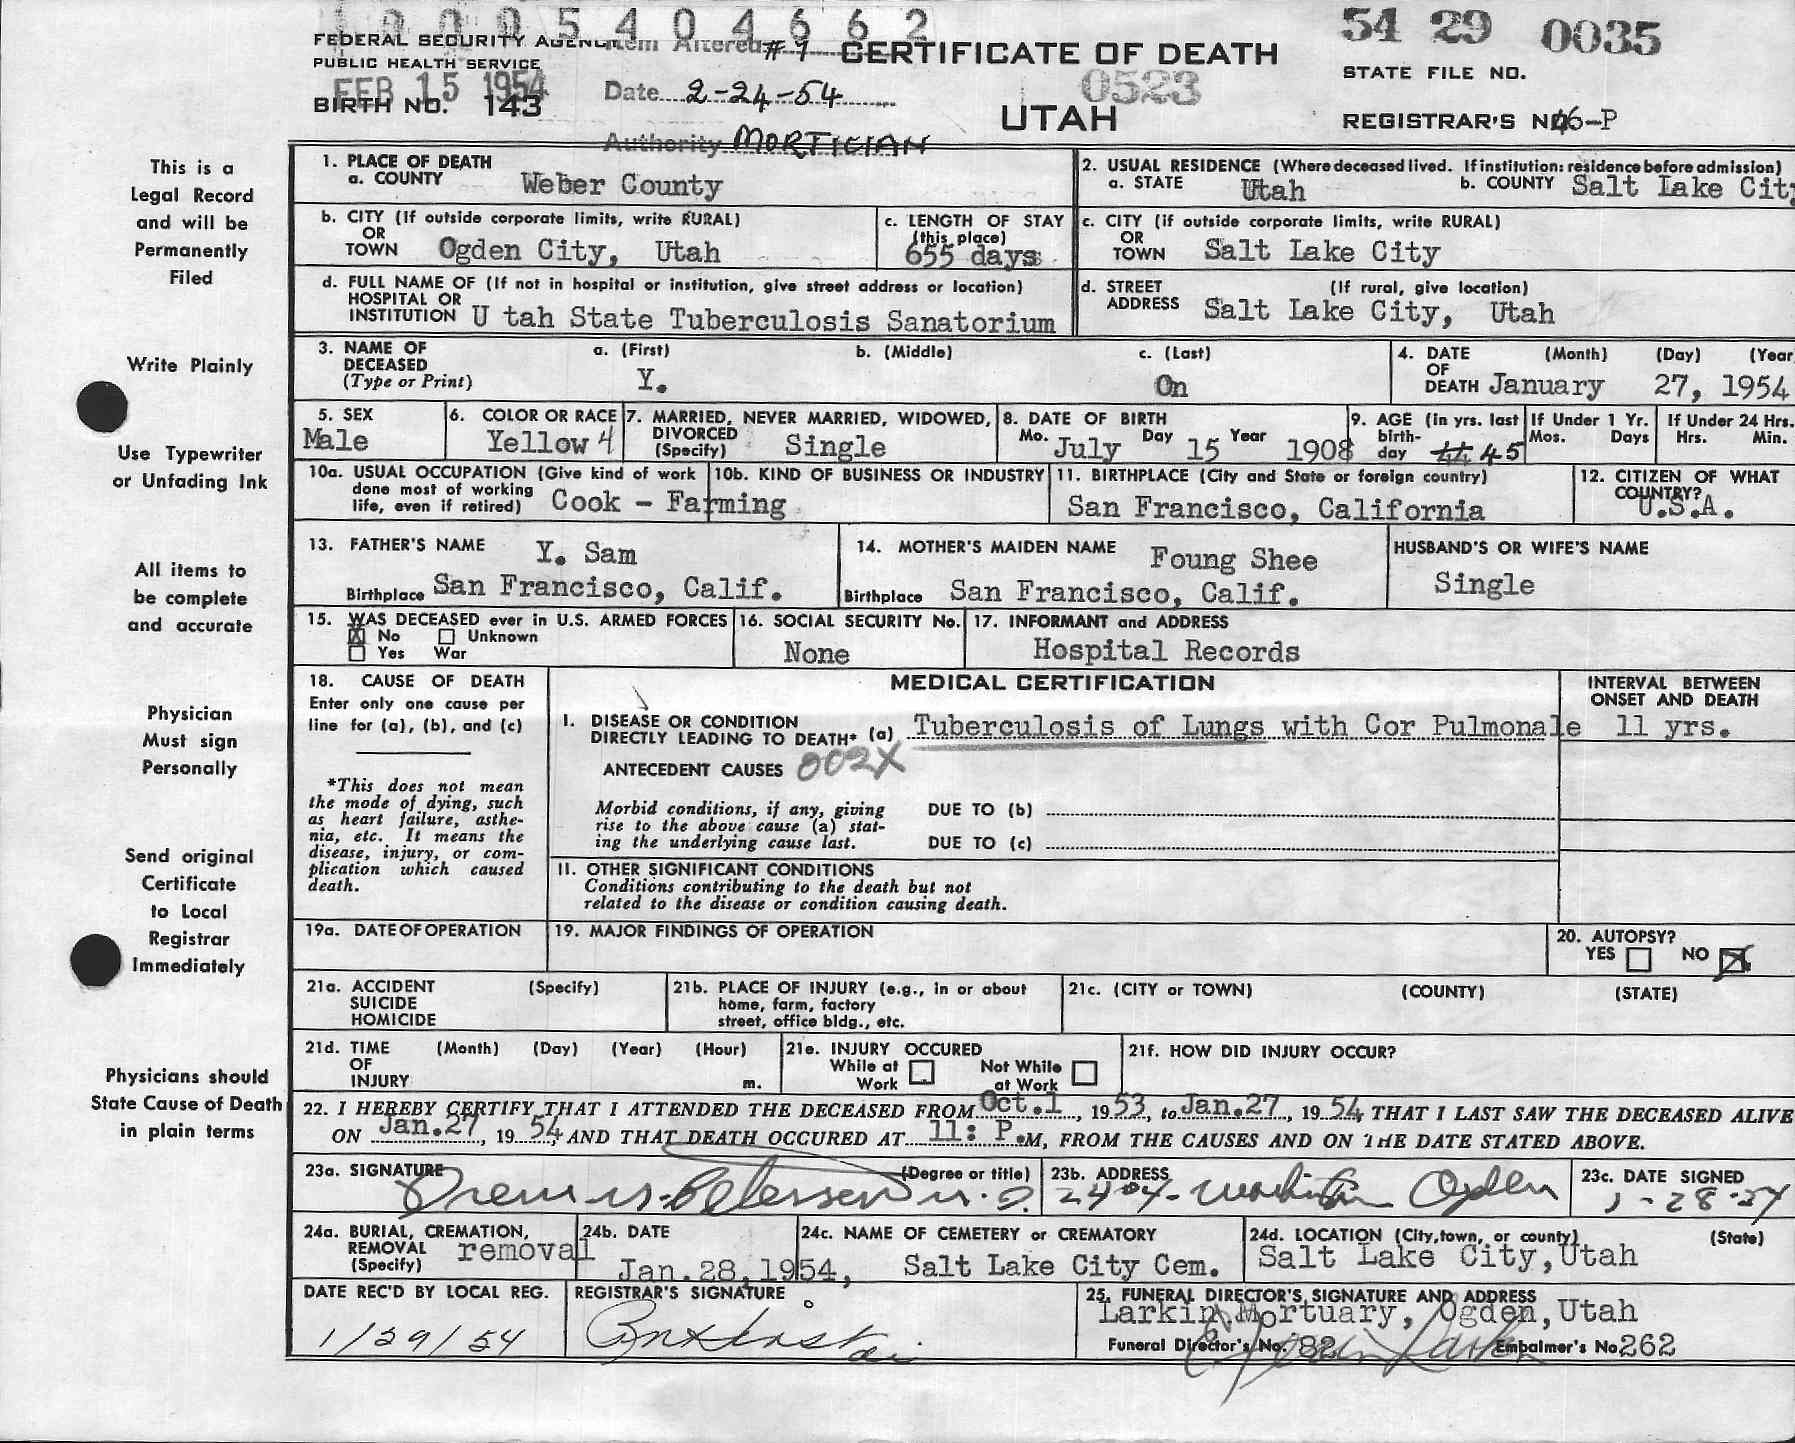 0005404662
54 29 0035
FEDERAL SECURITY AGENCY Item Altered #9 CERTIFICATE OF DEATH
PUBLIC HEALTH SERVICE
STATE FILE NO.
FEB 15 1954 Date 2-24-54 0523
BIRTH NO. 143 UTAH REGISTRAR'S NO. 46-P
Authority MORTICIAN
This is a
Legal Record
and will be
Permanently
Filed
Write Plainly
Use Typewriter
or Unfading Ink
All items to
be complete
and accurate
Physician
Must sign
Personally
Send original
Certificate
to Local
Registrar
Immediately
Physicians should
State Cause of Death
in plain terms
1. PLACE OF DEATH
a. COUNTY Weber County
2. USUAL RESIDENCE (Where deceased lived. If institution: residence before admission)
a. STATE Utah b. COUNTY Salt Lake City
b. CITY (If outside corporate limits, write RURAL)
OR
TOWN Ogden City, Utah
c. LENGTH OF STAY
(this place)
655 days
c. CITY (if outside corporate limits, write RURAL)
OR
TOWN Salt Lake City
d. FULL NAME OF (If not in hospital or institution, give street address or location)
HOSPITAL OR
INSTITUTION U tah State Tuberculosis Sanatorium
d. STREET (If rural, give location)
ADDRESS Salt Lake City, Utah
3. NAME OF a. (First) b. (Middle) c. (Last)
DECEASED
(Type or Print) Y. On
4. DATE (Month) (Day) (Year
OF
DEATH January 27, 1954
5. SEX
Male
6. COLOR OR RACE
Yellow 4
7. MARRIED, NEVER MARRIED, WIDOWED,
DIVORCED
(Specify) Single
8. DATE OF BIRTH
Mo. July Day 15 Year 1908
9. AGE (in yrs. last
birth-
day 44 45
If Under 1 Yr.
Mos. Days
If Under 24 Hrs.
Hrs. Min.
10a. USUAL OCCUPATION (Give kind of work
done most of working
life, even if retired) Cook - Farming
10b. KIND OF BUSINESS OR INDUSTRY
11. BIRTHPLACE (City and State or foreign country)
San Francisco, California
12. CITIZEN OF WHAT
COUNTRY?
U.S.A.
13. FATHER'S NAME Y. Sam
Birthplace San Francisco, Calif.
14. MOTHER'S MAIDEN NAME Foung Shee
Birthplace San Francisco, Calif.
HUSBAND'S OR WIFE'S NAME
Single
15. WAS DECEASED ever in U.S. ARMED FORCES
X No Unknown
Yes War
16. SOCIAL SECURITY No.
None
17. INFORMANT and ADDRESS
Hospital Records
18. CAUSE OF DEATH
Enter only one cause per
line for (a), (b), and (c)
*This does not mean
the mode of dying, such
as heart failure, asthe-
nia, etc. It means the
disease, injury, or com-
plication which caused
death.
MEDICAL CERTIFICATION
INTERVAL BETWEEN
ONSET AND DEATH
I. DISEASE OR CONDITION
DIRECTLY LEADING TO DEATH* (a) Tuberculosis of Lungs with Cor Pulmonale 11 yrs.
ANTECEDENT CAUSES 002X
Morbid conditions, if any, giving
rise to the above cause (a) stat-
ing the underlying cause last.
DUE TO (b)
DUE TO (c)
II. OTHER SIGNIFICANT CONDITIONS
Conditions contributing to the death but not
related to the disease or condition causing death.
19a. DATE OF OPERATION
19. MAJOR FINDINGS OF OPERATION
20. AUTOPSY?
YES NO X
21a. ACCIDENT (Specify)
SUICIDE
HOMICIDE
21b. PLACE OF INJURY (e.g., in or about
home, farm, factory
street, office bldg., etc.
21c. (CITY or TOWN) (COUNTY) (STATE)
21d. TIME (Month) (Day) (Year) (Hour)
OF
INJURY m.
21e. INJURY OCCURED
While at Work
Not While at Work
21f. HOW DID INJURY OCCUR?
22. I HEREBY CERTIFY THAT I ATTENDED THE DECEASED FROM Oct.1, 1953, to Jan.27, 1954, THAT I LAST SAW THE DECEASED ALIVE
ON Jan.27, 1954, AND THAT DEATH OCCURED AT 11: P.M, FROM THE CAUSES AND ON THE DATE STATED ABOVE.
23a. SIGNATURE (Degree or title)
M. D.
23b. ADDRESS
2404 - Washington Ogden
23c. DATE SIGNED
1-28-54
24a. BURIAL, CREMATION,
REMOVAL
(Specify) removal
24b. DATE
Jan. 28, 1954,
24c. NAME OF CEMETERY or CREMATORY
Salt Lake City Cem.
24d. LOCATION (City, town, or county) (State)
Salt Lake City, Utah
DATE REC'D BY LOCAL REG.
1/29/54
REGISTRAR'S SIGNATURE
25. FUNERAL DIRECTOR'S SIGNATURE AND ADDRESS
Larkin Mortuary, Ogden, Utah
Funeral Director's No. 82 Embalmer's No 262